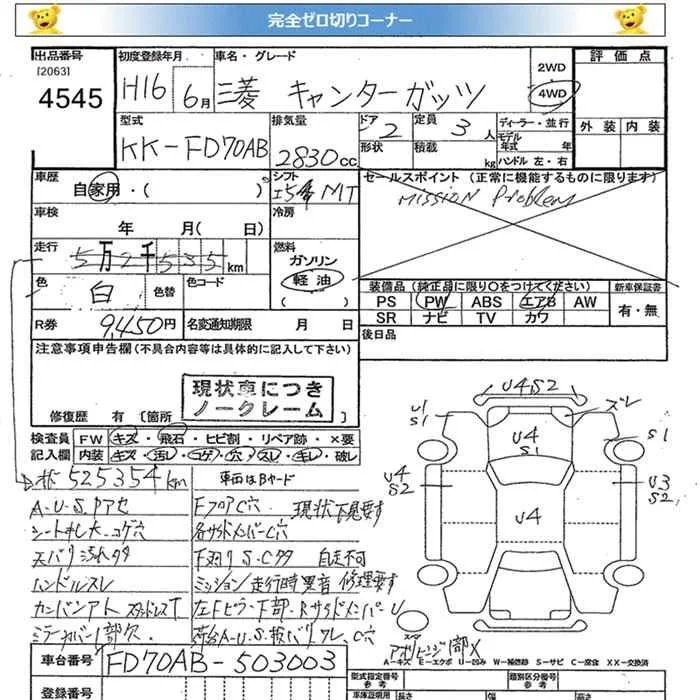 完全ゼロ切りコーナー
出品番号 初度登録年月 車名・グレード 2WD 評価点
[2063]
4545 H16 6月 三菱 キャンターガッツ 4WD
型式 排気量 ドア 定員 ディーラー・並行 外装 内装
KK-FD70AB 2830cc 2 3人 モデル年式 年
形状 積載 kg ハンドル 左・右
車歴 シフト セールスポイント (正常に機能するものに限ります)
自家用・( ) 5 MT MISSION Problem
車検 冷房
年 月( 日)
走行 燃料
5万2千535km ガソリン
色 色替 色コード 軽油
白 ( )
装備品 (純正品に限り○をつけてください) 新車保証書
PS PW ABS エアB AW 有・無
SR ナビ TV カワ
R券 9,450円 名変通知期限 月 日 後日品
注意事項申告欄(不具合内容等は具体的に記入して下さい)
現状車につき
ノークレーム
修復歴 有 [箇所
検査員 FW キズ・飛石・ヒビ割・リペア跡・×要
記入欄 内装 キズ・汚レ・コゲ・穴・スレ・キレ・破レ
U4S2
U1 S1 ズレ
U4 S1 S1
U4 S2 U3 S2
U4
525354km 車両はBヤード
A・U・S・Pアセ FフロアC穴 現状下見要す
シートキレ大・コゲ穴 各サイドメンバーC穴
天バリ汚れ 自走不可
ハンドルスレ ミッション走行時異音 修理要す
カンバンアト
ミラーカバー1部欠
A=キズ E=エクボ U=凹み W=補修跡 S=サビ C=腐食 XX=交換済
車台番号 FD70AB-503003 型式指定番号 参考 類別区分番号 参考
登録番号 車庫証明用 長さ 幅 高さ